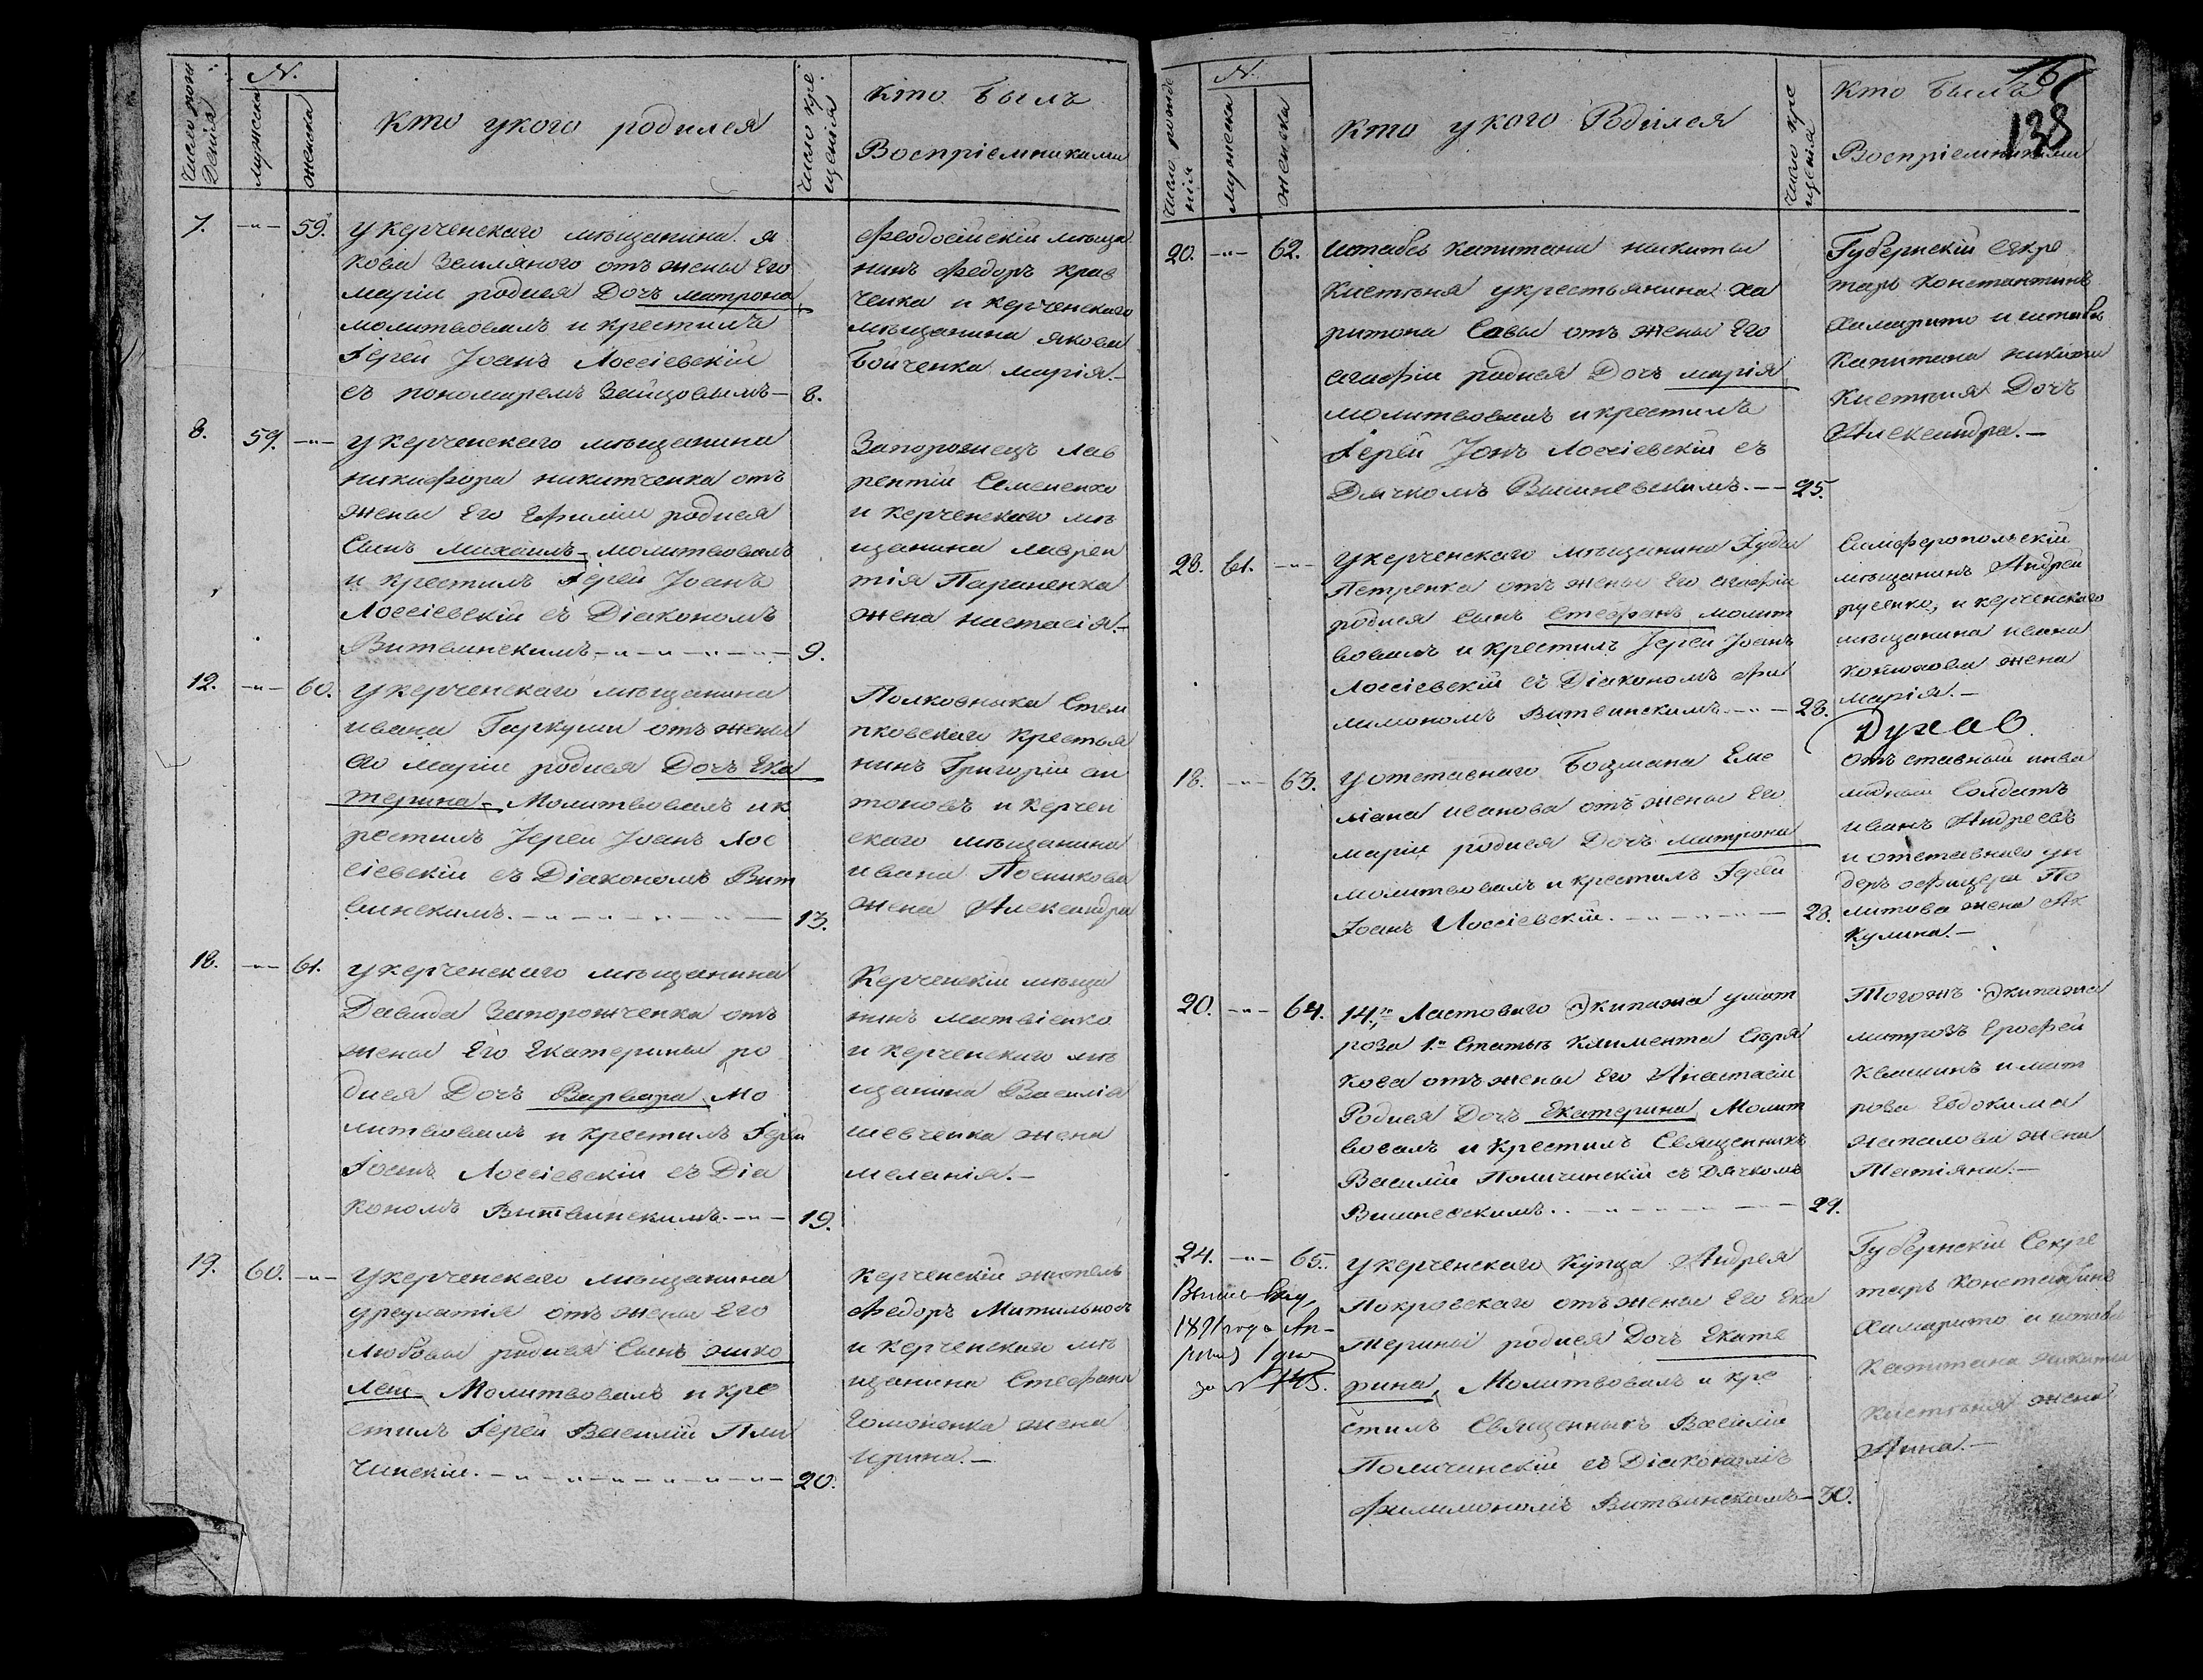 Число рож
денія
N.
мужеска
женска
Кто у кого родился
Число кре
щенія
Кто былъ
Воспріемниками
7.
59.
У керченскаго мѣщанина я
кова Земляного отъ жены Его
маріи родися Дочь матрона
молитвовалъ и крестилъ
Іерей Іоанъ Лоссіевскій
съ пономаремъ Зайцовымъ
8.
Феодосійскій мѣща
нинъ Федоръ крав
ченка и керченскаго
мѣщанина якова
Бойченка марія.
8.
59.
У керченскаго мѣщанина
никифора никитченка отъ
жены Его Ефиміи родися
Сынъ михаилъ молитвовалъ
и крестилъ Іерей Іоанъ
Лоссіевскій съ Діакономъ
Витвинскимъ
9.
Запорожецъ лав
рентій Семененко
и керченскаго мѣ
щанина лаврен
тія Параненка
жена настасія.
12.
60.
У керченскаго мѣщанина
ивана Гаркуши отъ жены
его маріи родися Дочь Ека
терина Молитвовалъ и к
рестилъ Іерей Іоанъ Лос
сіевскій съ Діакономъ Вит
винскимъ.
13.
Полковника Стем
пковскаго крестья
нинъ Григорій ан
тоновъ и керчен
скаго мѣщанина
ивана Посникова
жена Александра
18.
61.
У керченскаго мѣщанина
Давида Запорожченка отъ
жены Его Екатерины ро
дися Дочь Варвара Мо
литвовалъ и крестилъ Іерей
Іоанъ Лоссіевскій съ Діа
кономъ Витвинскимъ.
19.
Керченскій мѣща
нинъ матвіенко
и керченскаго мѣ
щанина Василія
шевченка жена
меланія.
19.
60.
У керченскаго мѣщанина
отъ жены Его
любовы родися Сынъ нико
лай Молитвовалъ и кре
стилъ Іерей Василій Пли
чинскій.
20.
Керченскій житель
Федоръ
и керченскаго мѣ
щанина Стефана
Гомоненка жена
ирина.
138
Число рожде
нія
N.
мужеска
женска
Кто у кого Родился
Число кре
щенія
Кто былъ
Воспріемниками
20.
62.
Штабсъ капитана никиты
у крестьянина ха
ритона Савы отъ жены Его
агафіи родися Дочь марія
молитвовалъ и крестилъ
Іерей Іонъ Лоссіевскій съ
Дячкомъ Вышневскимъ.
25.
Губернскій секре
таръ Константинъ
и штабсъ
капитана никиты
Дочь
Александра.
28.
61.
У керченскаго мѣщанина
Петренка отъ жены Его агафіи
родися Сынъ Стефанъ молит
вовалъ и крестилъ Іерей Іоанъ
Лоссіевскій съ Діакономъ Фи
лимономъ Витвинскимъ.
28.
Симферопольскій
мѣщанинъ Андрей
русенко, и керченскаго
мѣщанина ивана
жена
марія.
18.
63.
У отставнаго Боцмана Еме
ліана иванова отъ жены Его
маріи родися Дочь матрона
молитвовалъ и крестилъ Іерей
Іоанъ Лоссіевскій.
28.
Отъставный инва
лидный Солдатъ
иванъ Андреевъ
и отставнаго ун
деръ офицера По
литива жена Ак
кулина.
20.
64.
14.го Ластоваго Экипажа у мат
роза 1.й Статьи климента
кова отъ жены Его Анастасіи
Родися Дочь Екатерина Молит
вовалъ и крестилъ Священникъ
Василій Поличинскій съ Дячкомъ
Вишневскимъ.
29.
Тогожъ экипажа
матрозъ Ерофей
Квашинъ и мат
роза Евдокима
жена
Татіяна.
24.
65.
1891 года Ап-
за № 145.
У керченскаго купца Андрея
Покровскаго отъ жены Его Ека
терины родися Дочь Екате
рина, Молитвовалъ и кре
стилъ Священникъ Василій
Поличинскій съ Діакономъ
Филимономъ Витвинскимъ
30.
Губернскій Секре
таръ Константинъ
и штабсъ
Капитана никиты
жена
Анна.